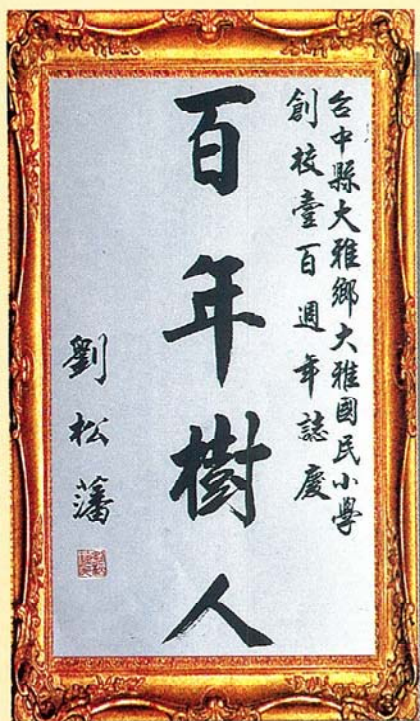 台中縣大雅鄉大雅國民小學
創校壹百週年誌慶
百年樹人
劉松藩